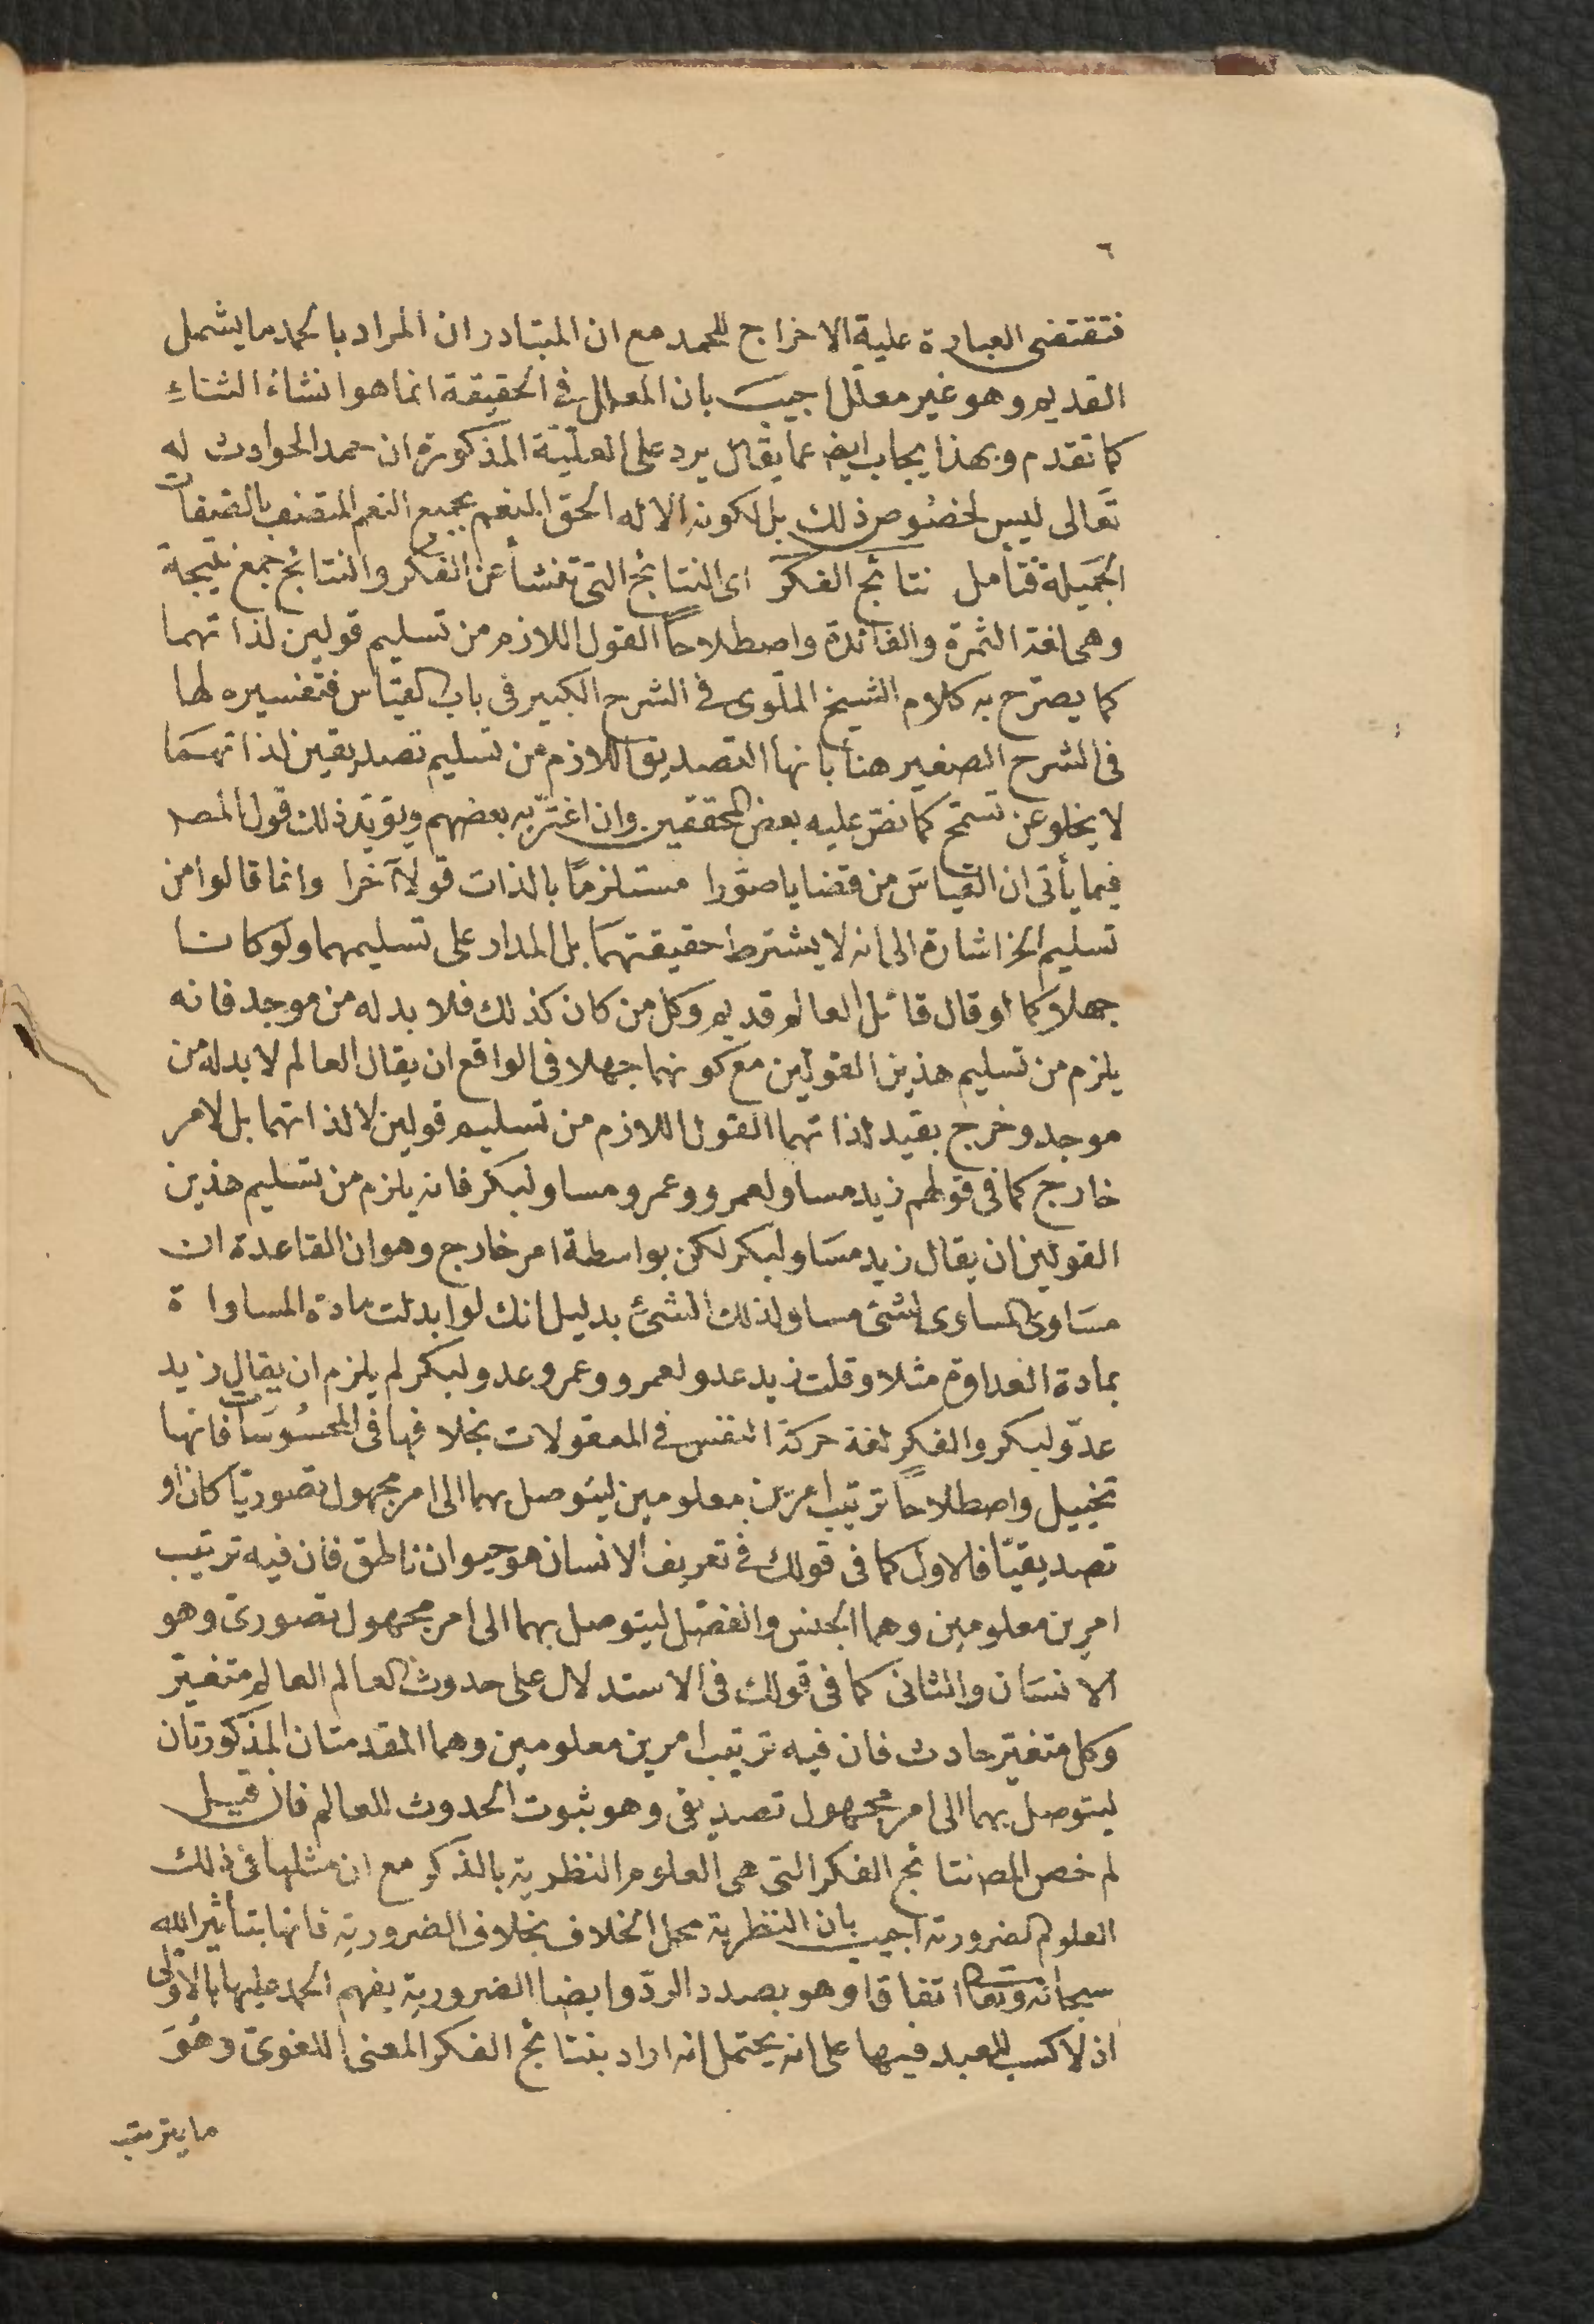 ٦
فتقتضى العبارة علية الاخراج للحمد مع ان المتبادر ان المراد بالحمد ما يشمل
القديم وهو غير معلل اجيب بان المعلل فى الحقيقة انما هو انشاء الثناء
كما تقدم وبهذا يجاب ايض عما يقال يرد على العلّيّة المذكورة ان حمد الحوادث له
تعالى ليس لخصوص ذلك بل لكونه الاله الحق المنعم بجميع النعم المتصف بالصفات
الجميلة فتأمل نتائج الفكر اى النتائج التى تنشأ عن الفكر والنتائج جمع نتيجة
وهى لغة الثمرة والفائدة واصطلاحاً القول اللازم من تسليم قولين لذاتهما
كما يصرّح به كلام الشيخ الملّوى فى الشرح الكبير فى باب القياس فتفسيره لها
فى الشرح الصغير هنا بانها التصديق اللازم من تسليم تصديقين لذاتهما
لا يخلو عن تسمّح كما نصّ عليه بعض المحققين وان اغترّ به بعضهم ويؤيّد ذلك قول المصـ
فيما يأتى ان القياس من قضايا صوّرا مستلزمًا بالذات قولاً آخرا وانما قالوا من
تسليم الخ اشارة الى انه لا يشترط حقيقتهما بل المدار على تسليمهما ولو كانا
جهلا كما لو قال قائل العالم قديم وكل من كان كذلك فلا بد له من موجد فانه
يلزم من تسليم هذين القولين مع كونهما جهلا فى الواقع ان يقال العالم لا بد له من
موجد وخرج بقيد لذاتهما القول اللازم من تسليم قولين لا لذاتهما بل لامر
خارج كما فى قولهم زيد مساو لعمرو وعمرو مساو لبكر فانه يلزم من تسليم هذين
القولين ان يقال زيد مساو لبكر لكن بواسطة امر خارج وهو ان القاعدة ان
مساوى المساوى لشئ مساو لذلك الشئ بدليل انك لو ابدلت مادة المساواة
بمادة العداوة مثلا وقلت زيد عدو لعمرو وعمرو عدو لبكر لم يلزم ان يقال زيد
عدوّ لبكر والفكر لغة حركة النفس فى المعقولات بخلافها فى المحسوسات فانها
تخييل واصطلاحاً ترتيب امرين معلومين ليتوصل بهما الى امر مجهول تصوريّا كان او
تصديقيّا فالاول كما فى قولك فى تعريف الانسان هو حيوان ناطق فان فيه ترتيب
امرين معلومين وهما الجنس والفصل ليتوصل بهما الى امر مجهول تصورىّ وهو
الانسان والثانى كما فى قولك فى الاستدلال على حدوث العالم العالم متغيّر
وكل متغيّر حادث فان فيه ترتيب امرين معلومين وهما المقدمتان المذكورتان
ليتوصل بهما الى امر مجهول تصديقى وهو ثبوت الحدوث للعالم فان قيل
لم خص المصـ نتائج الفكر التى هى العلوم النظرية بالذكر مع ان مثلها فى ذلك
العلوم الضرورية اجيب بان النظرية محل الخلاف بخلاف الضرورية فانها بتأثير الله
سبحانه وتعا اتفاقا وهو بصدد الردّ وايضا الضرورية يفهم الحمد عليها بالاولى
اذ لا كسب للعبد فيها على انه يحتمل انه اراد بنتائج الفكر المعنى اللغوىّ وهو
ما يترتب